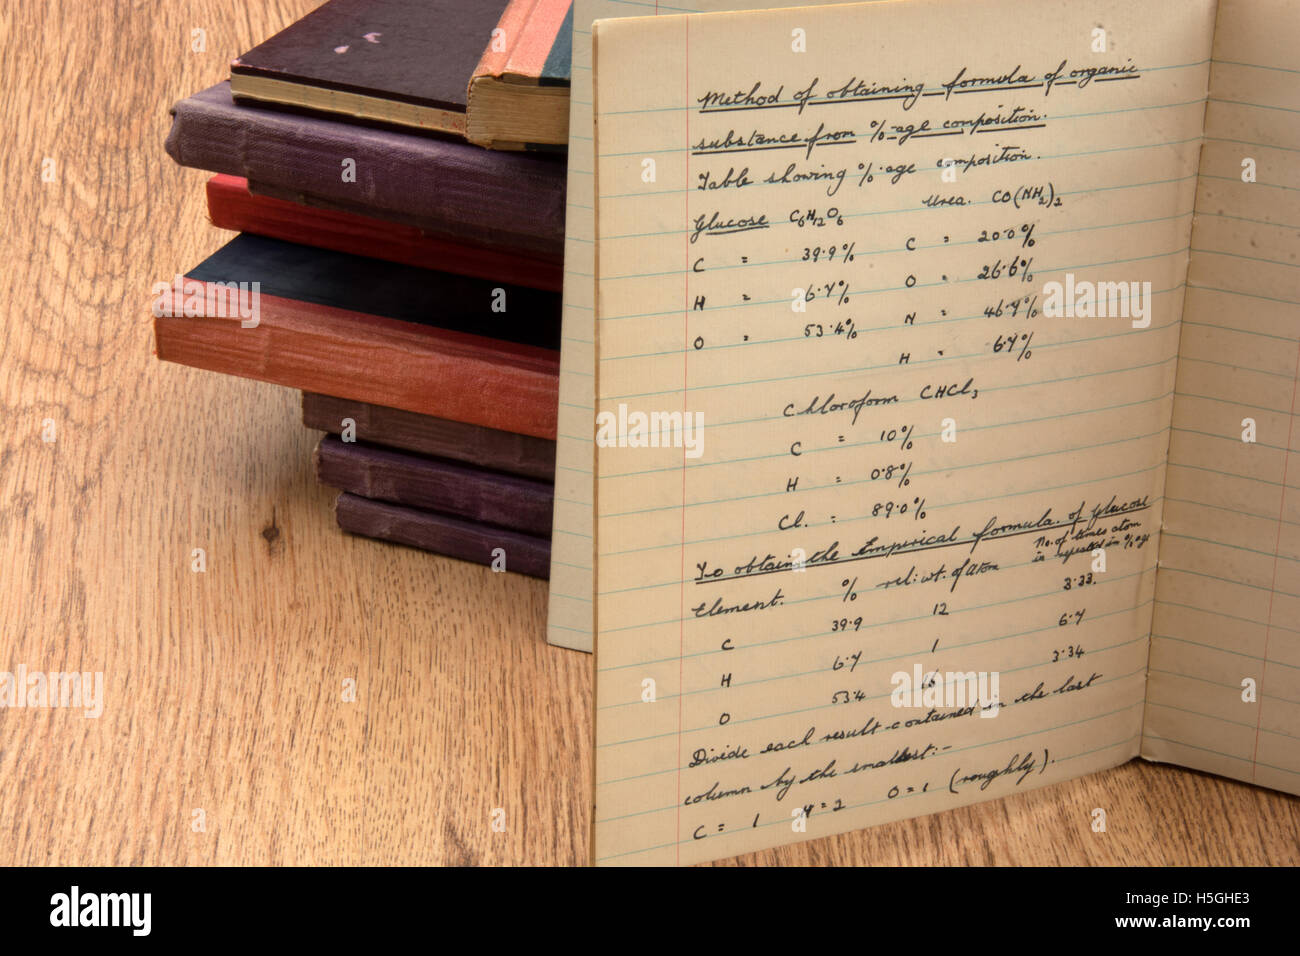 Method of obtaining formula of organic
substance from %-age composition.
Table showing %-age composition.
Glucose C6H12O6 Urea. CO(NH2)2
C = 39.9% C = 20.0%
H = 6.7% O = 26.6%
O = 53.4% N = 46.7%
H = 6.7%
Chloroform CHCl3
C = 10%
H = 0.8%
Cl. = 89.0%
To obtain the Empirical formula of Glucose
Element. % rel: wt. of atom No. of times atom
is repeated in %age
C 39.9 12 3.33.
H 6.7 1 6.7
O 53.4 16 3.34
Divide each result contained in the last
column by the smallest:-
C = 1 H = 2 O = 1 (roughly).
alamy
Image ID: H5GHE3
www.alamy.com